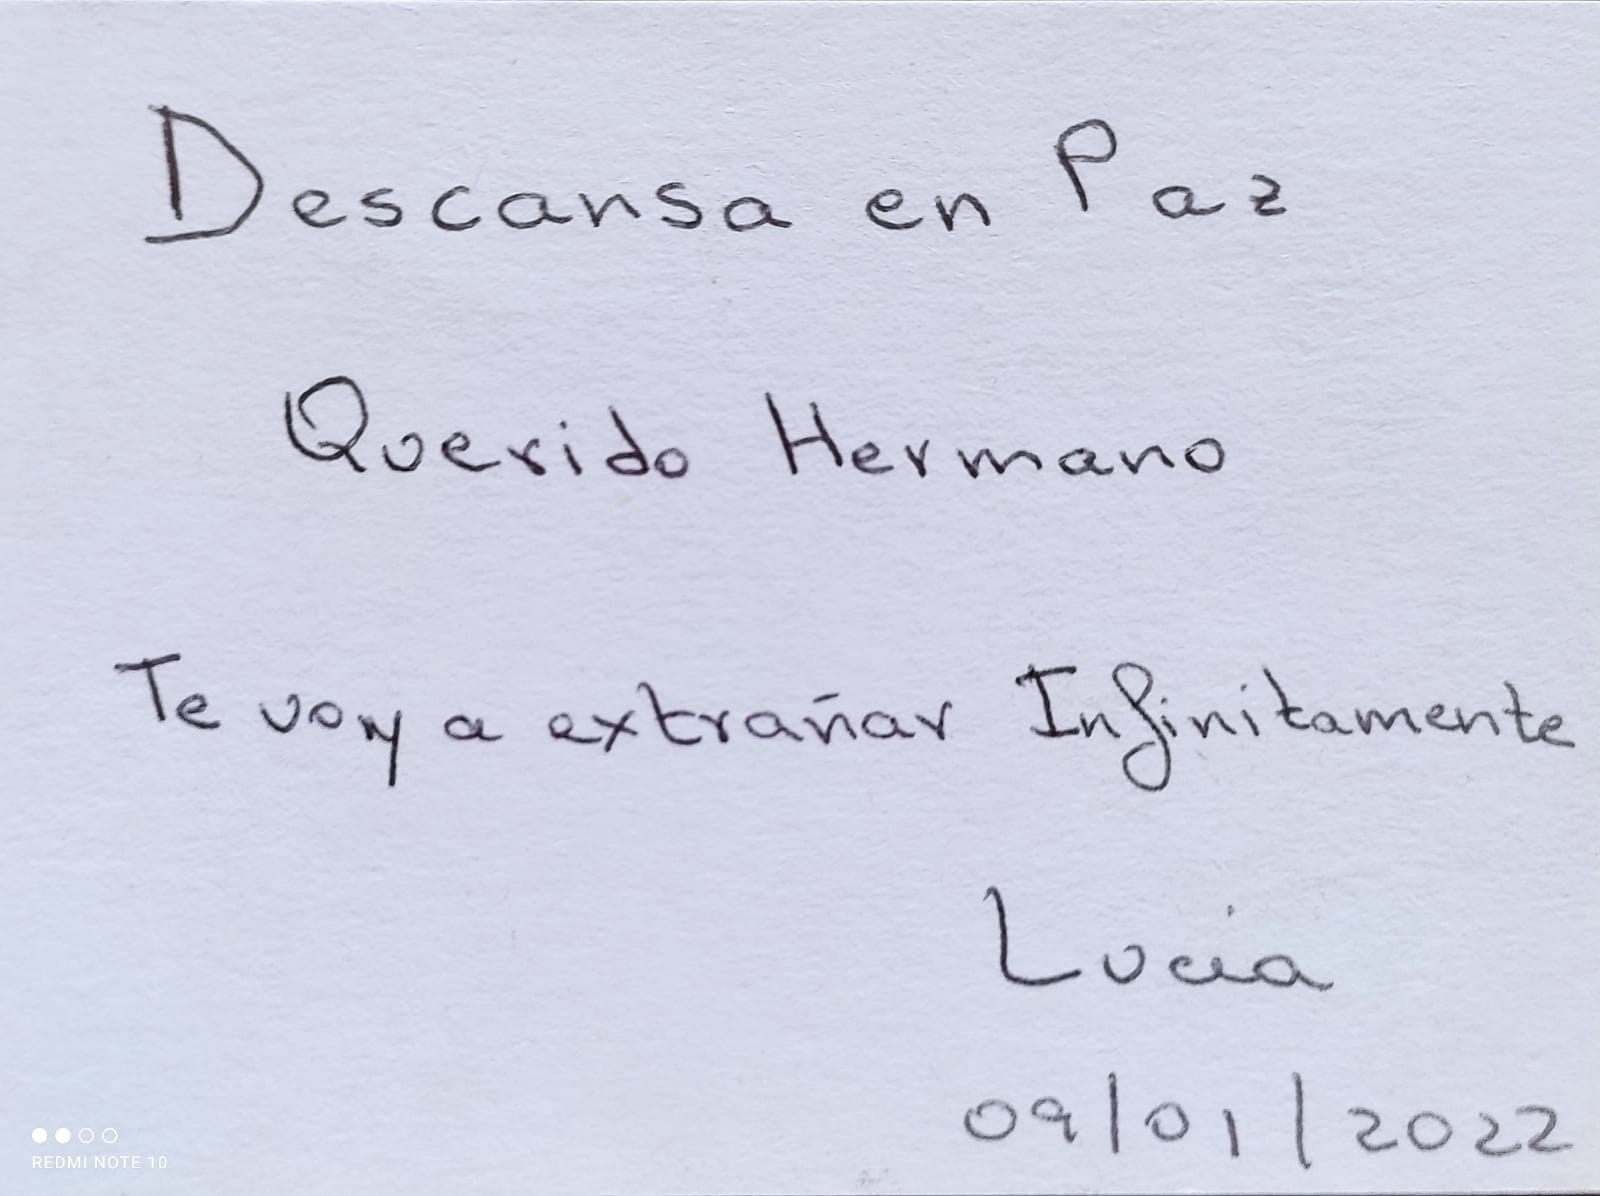 Descansa en Paz
Querido Hermano
Te voy a extrañar Infinitamente
Lucia
09/01/2022
REDMI NOTE 10